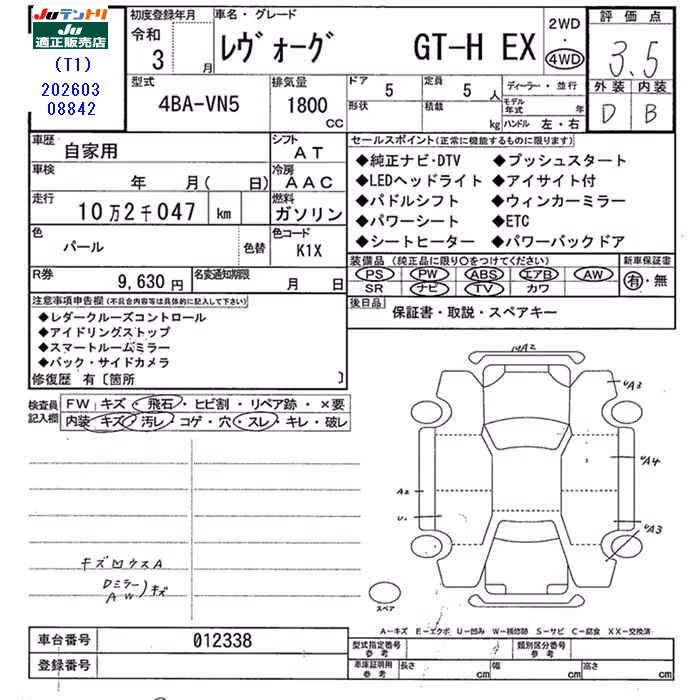 JUテントリ
JU 適正販売店
(T1)
202603
08842
初度登録年月
令和
3 月
車名・グレード
レヴォーグ GT-H EX
2WD
・
4WD
評価点
3.5
外装 内装
D B
型式
4BA-VN5
排気量
1800
CC
ドア
5
定員
5 人
形状
積載
kg
ディーラー・並行
モデル年式 年
ハンドル 左・右
車歴
自家用
シフト
AT
車検
年 月( 日)
冷房
AAC
走行
10万2千047 km
燃料
ガソリン
色
パール
色替
色コード
K1X
R券
9,630円
名変通知期限
月 日
セールスポイント(正常に機能するものに限ります)
◆純正ナビ・DTV ◆プッシュスタート
◆LEDヘッドライト ◆アイサイト付
◆パドルシフト ◆ウィンカーミラー
◆パワーシート ◆ETC
◆シートヒーター ◆パワーバックドア
装備品(純正品に限り〇をつけてください)
PS PW ABS エアB AW
SR ナビ TV カワ
新車保証書
有・無
後日品
保証書・取説・スペアキー
注意事項申告欄(不具合内容等は具体的に記入して下さい)
◆レダークルーズコントロール
◆アイドリングストップ
◆スマートルームミラー
◆バック・サイドカメラ
修復歴 有〔箇所 〕
検査員記入欄
FW キズ・飛石・ヒビ割・リペア跡・×要
内装 キズ・汚レ・コゲ・穴・スレ・キレ・破レ
キズ凹ウスA
Dミラー
AW)キズ
A2
UA3
UA4
A2
U1
UA3
スペア
A-キズ E-エクボ U-凹み W-補修跡 S-サビ C-腐食 XX-交換済
車台番号
012338
登録番号
型式指定番号
参考
類別区分番号
参考
車庫証明用
参考
長さ cm
幅 cm
高さ cm